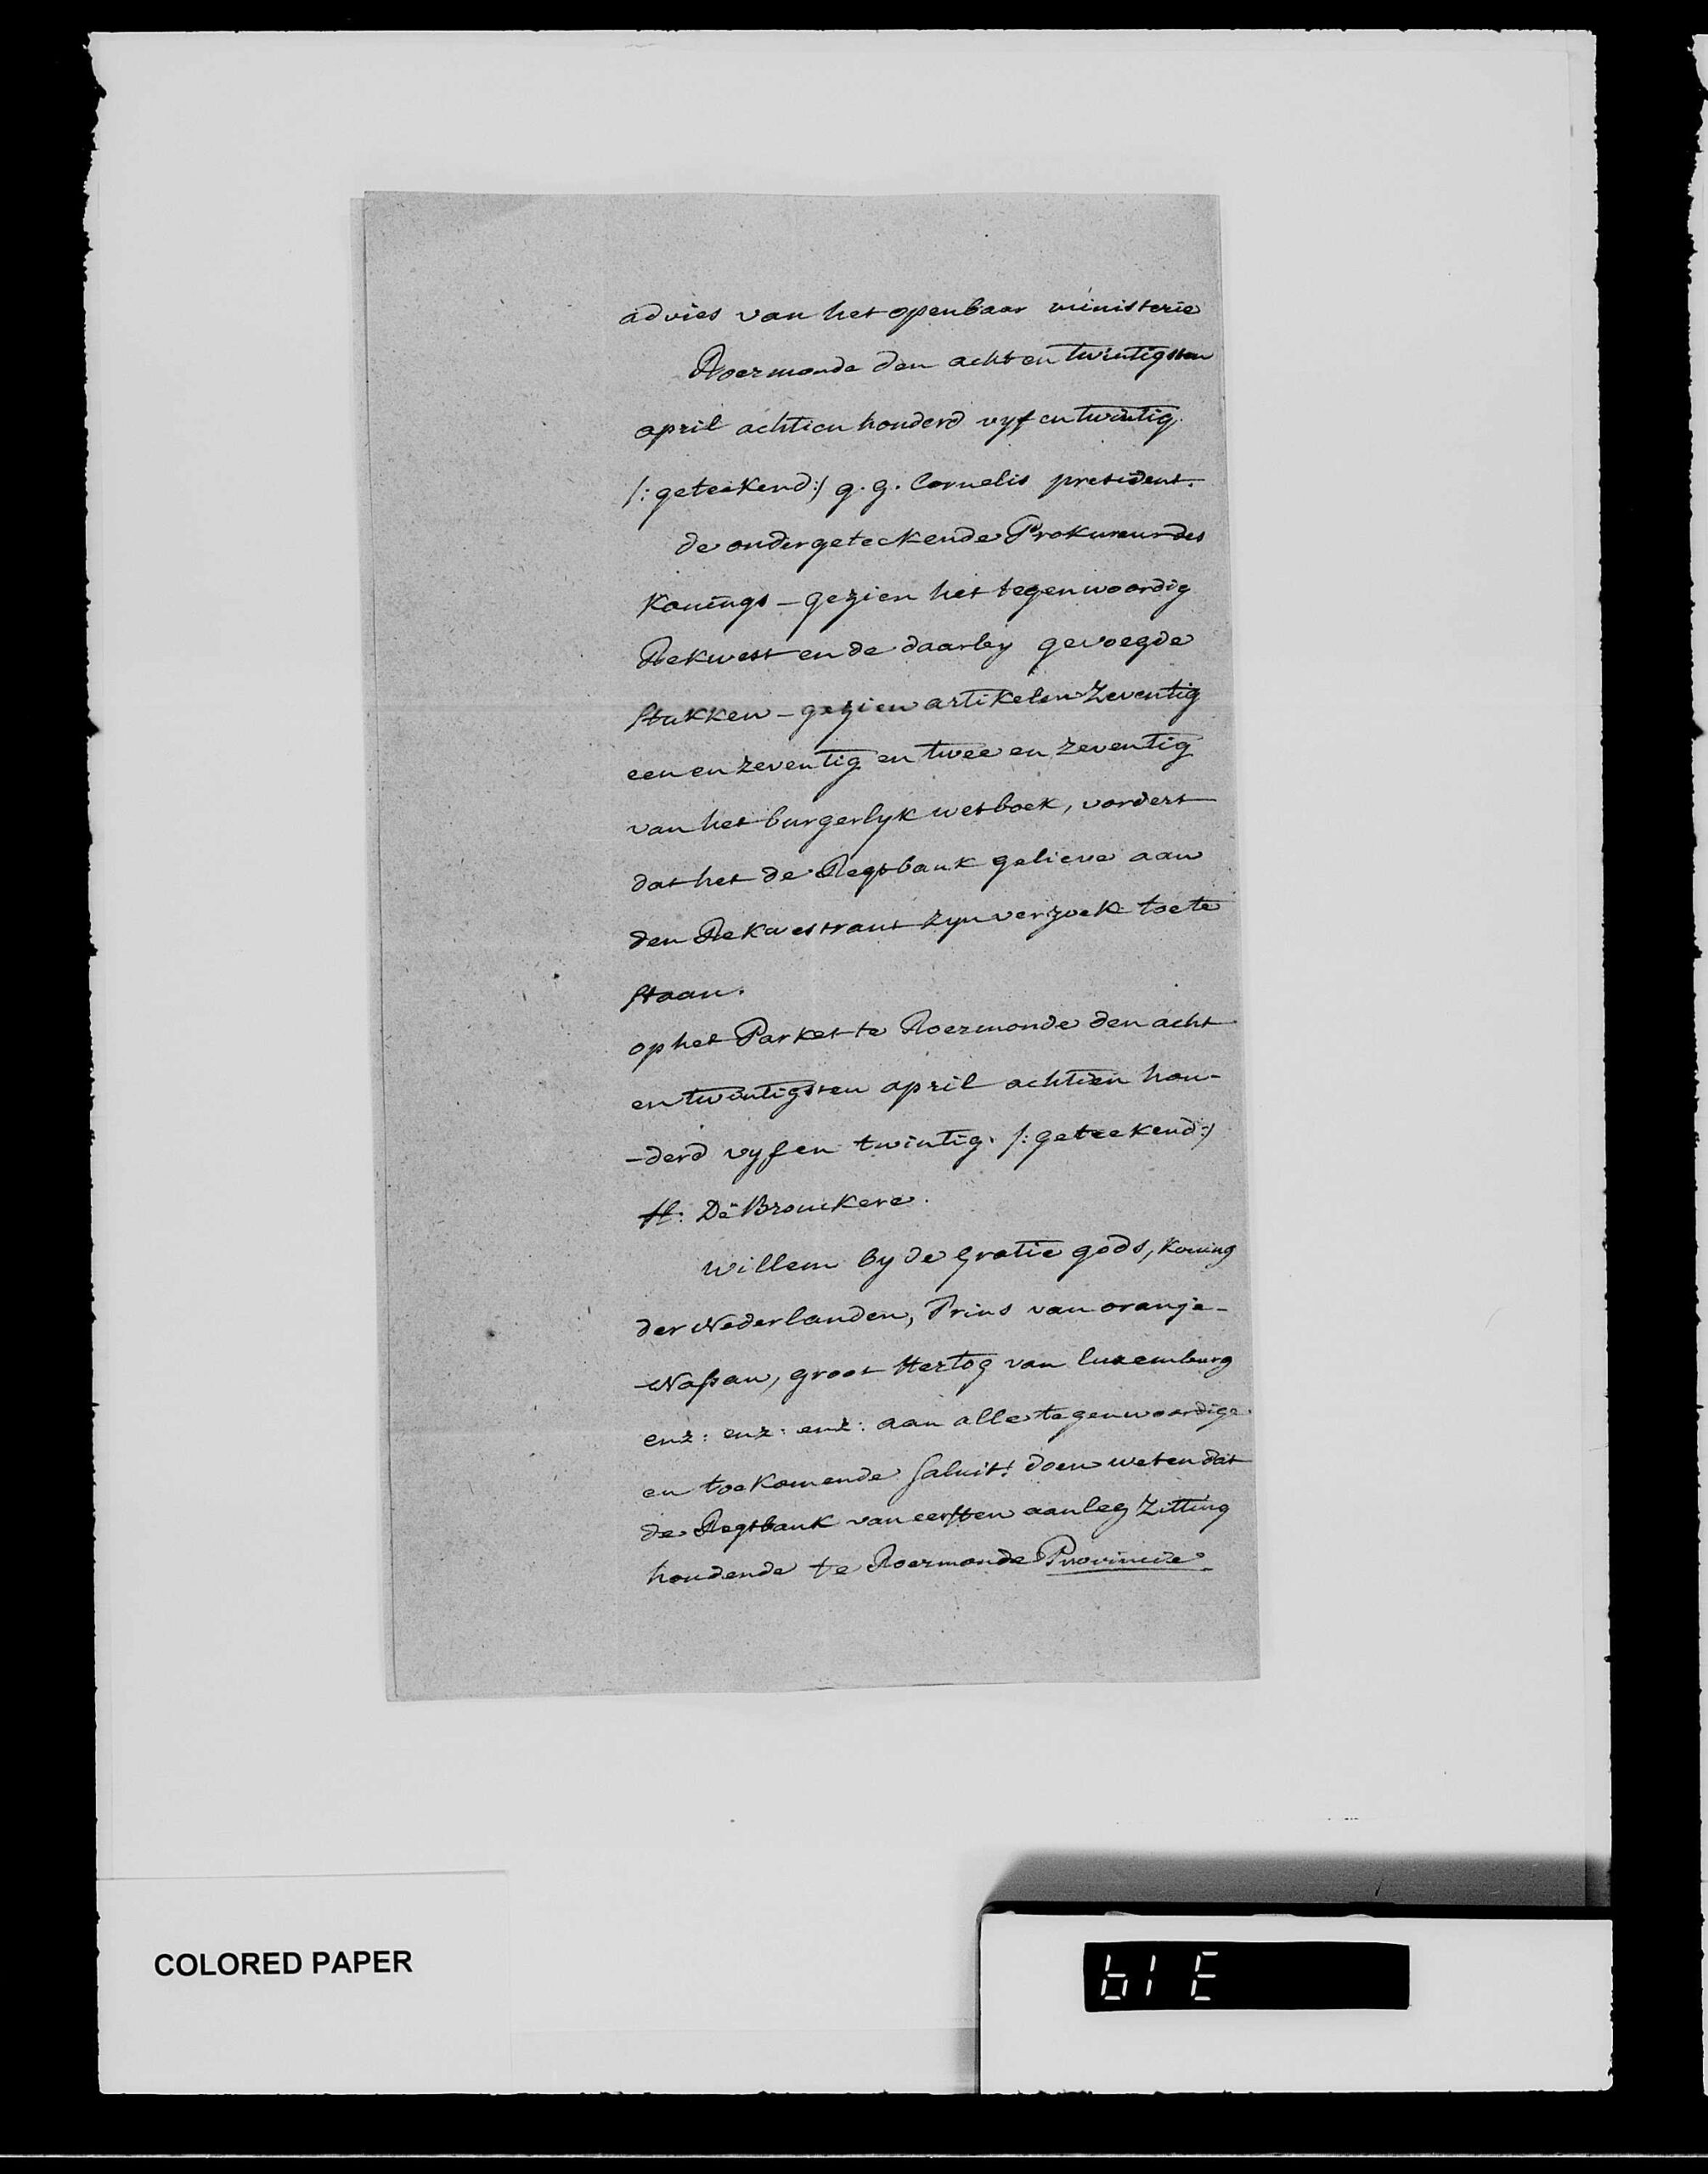 advies van het openbaar ministerie
Roermonde den acht en twintigsten
april achtien honderd vyf en twintig.
/: geteekend:/ g. g. Cornelis president.
de ondergeteekende Prokureur des
Konings - gezien het tegenwoordig
Rekwest en de daarby gevoegde
stukken - gezien artikelen zeventig
een en zeventig en twee en zeventig
van het burgerlyk wetboek, vordert
dat het de Regtbank gelieve aan
den Rekwestrant zyn verzoek toe te
staan.
op het Parket te Roermonde den acht
en twintigsten april achtien hon-
-derd vyf en twintig. /: geteekend:/
H: De Brouckere.
Willem by de gratie gods, Koning
der Nederlanden, Prins van oranje-
-Nassau, groot Hertog van luxemburg
enz: enz: enz: aan alle tegenwoordige
en toekomende saluit! doen weten dat
de Regtbank van eersten aanleg Zitting
houdende te Roermonde Provincie
COLORED PAPER